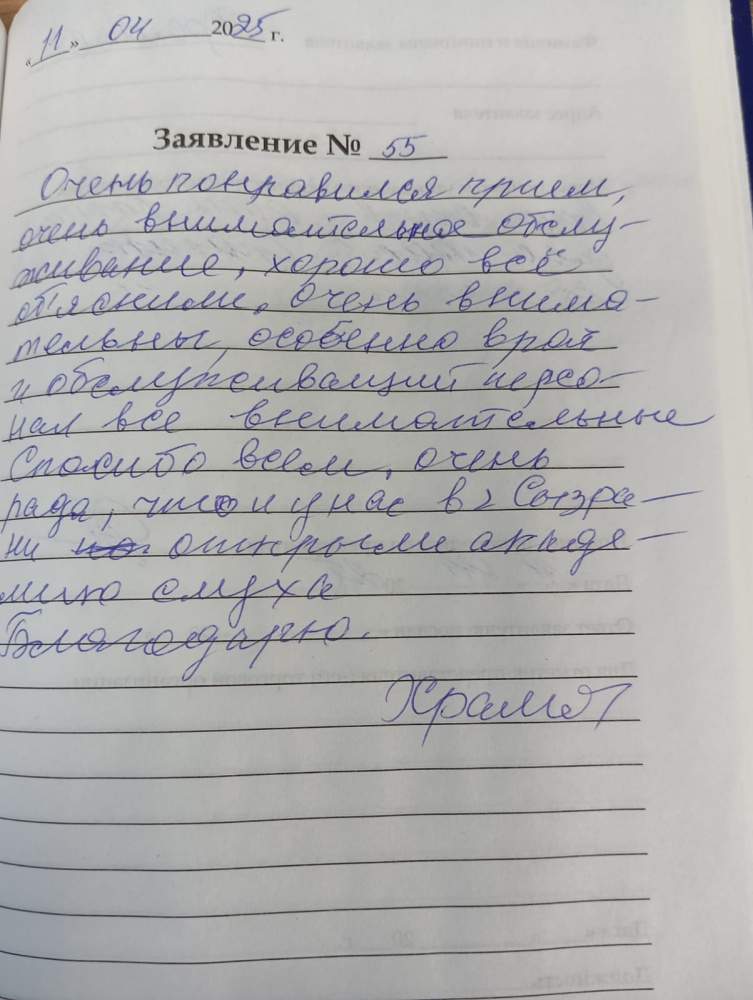 «11» 04 2025 г.
Заявление № 55
Очень понравился прием,
очень внимательное обслу-
живание, хорошо всё
об'яснили, очень внима-
тельны, особенно врач
и обслуживающий персо-
нал все внимательные
Спасибо всем, очень
рада, что и у нас в г Сызра-
ни открыли акаде-
мию слуха
Благодарю.